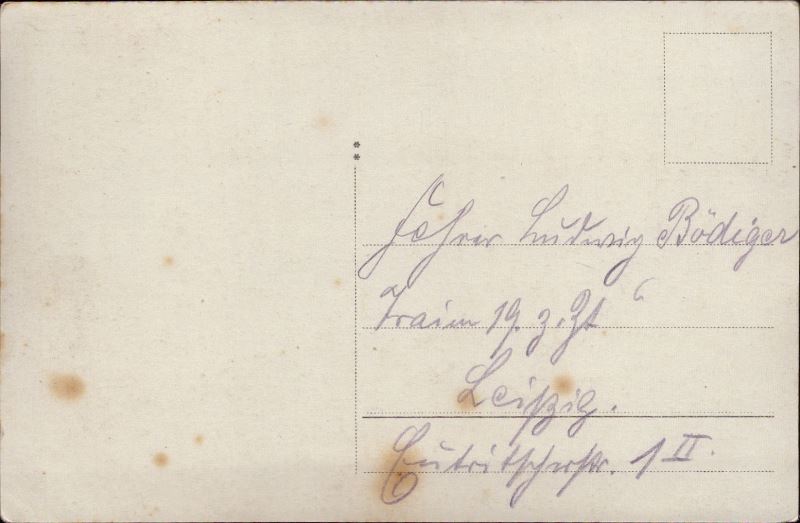 Fahrer Ludwig Bödiger
Train 19. z. Zt
Leipzig.
Eutritscherstr. 1 II.